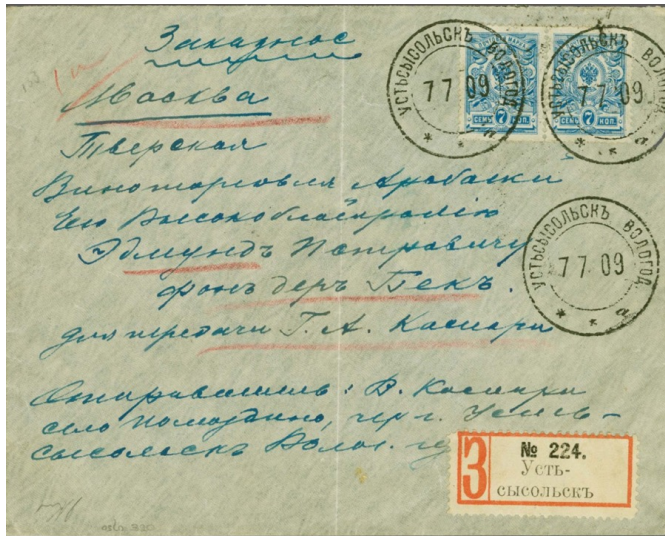 Заказное
Москва
Тверская
Виноторговля Арабажи
Его Высокоблагородію
Эдмундъ Петровичу
фонъ деръ Пекъ.
для передачи Г. А. Каспари
Отправитель: В. Каспари
село Помоздино, чер. г. Усть-
сысольскъ Волог. гу
УСТЬСЫСОЛЬСКЪ ВОЛОГОД.
7 7 09
* * а
УСТЬСЫСОЛЬСКЪ ВОЛОГОД.
7 7 09
* * а
СЕМЬ 7 КОП.
СЕМЬ 7 КОП.
УСТЬСЫСОЛЬСК ВОЛОГОД.
7 7 09
* * а
З
№ 224.
Усть-
сысольскъ